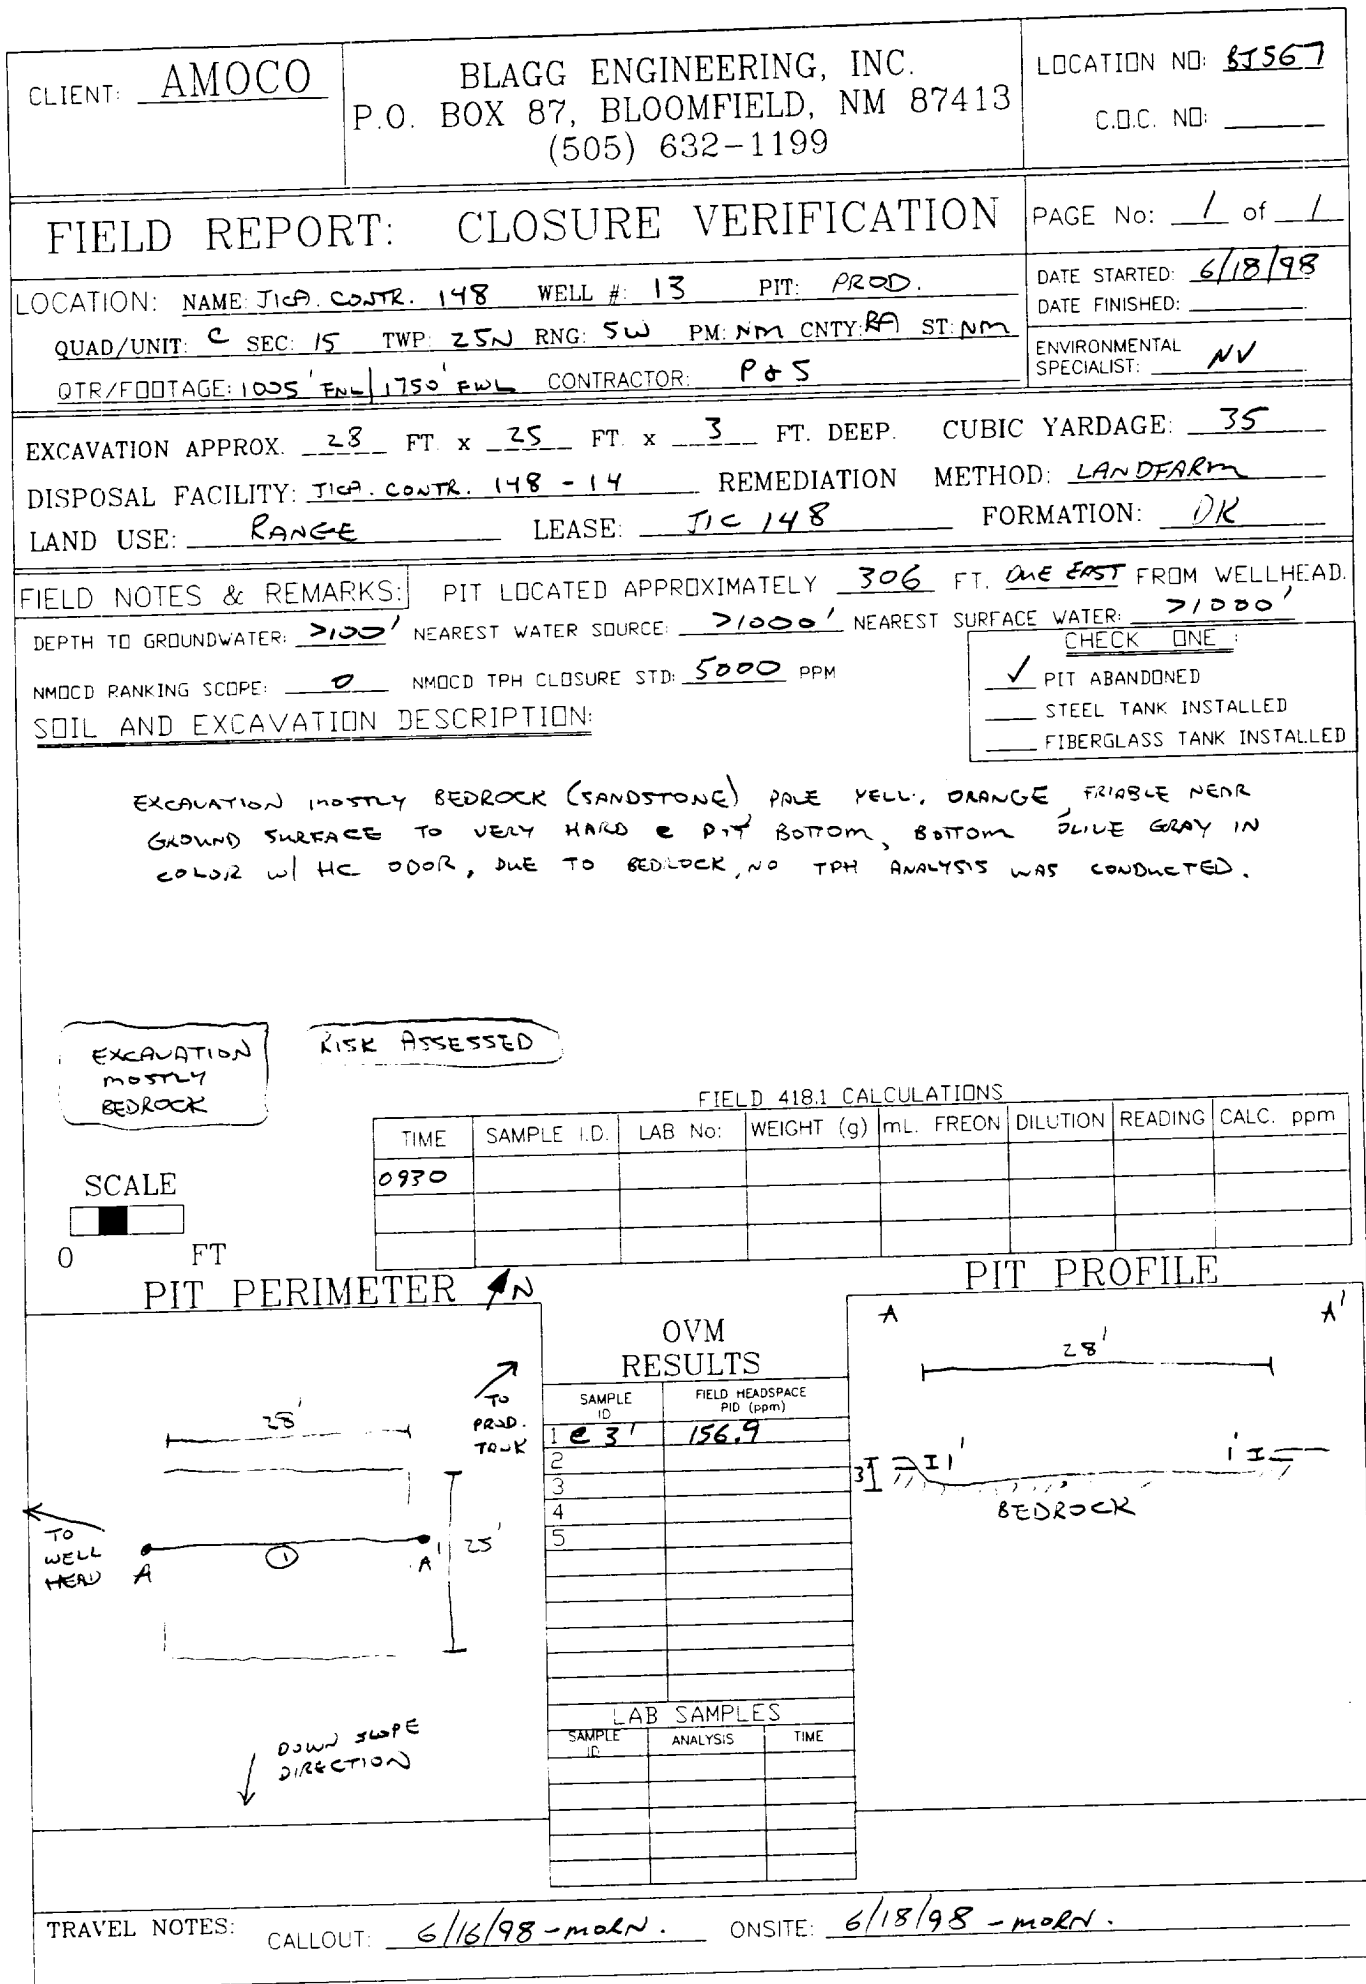 CLIENT: AMOCO
BLAGG ENGINEERING, INC.
P.O. BOX 87, BLOOMFIELD, NM 87413
(505) 632-1199
LOCATION NO: BJ567
C.O.C. NO:
FIELD REPORT: CLOSURE VERIFICATION
PAGE No: 1 of 1
LOCATION: NAME: JICA. CONTR. 148 WELL #: 13 PIT: PROD.
QUAD/UNIT: C SEC: 15 TWP: 25N RNG: 5W PM: NM CNTY: RA ST: NM
QTR/FOOTAGE: 1005' FNL/1750' FWL CONTRACTOR: P & S
DATE STARTED: 6/18/98
DATE FINISHED:
ENVIRONMENTAL
SPECIALIST: NV
EXCAVATION APPROX. 28 FT. x 25 FT. x 3 FT. DEEP. CUBIC YARDAGE: 35
DISPOSAL FACILITY: JICA. CONTR. 148 - 14 REMEDIATION METHOD: LANDFARM
LAND USE: RANGE LEASE: JIC 148 FORMATION: DK
FIELD NOTES & REMARKS: PIT LOCATED APPROXIMATELY 306 FT. DUE EAST FROM WELLHEAD.
DEPTH TO GROUNDWATER: >100' NEAREST WATER SOURCE: >1000' NEAREST SURFACE WATER: >1000'
NMOCD RANKING SCOPE: 0 NMOCD TPH CLOSURE STD: 5000 PPM
CHECK ONE :
✓ PIT ABANDONED
STEEL TANK INSTALLED
FIBERGLASS TANK INSTALLED
SOIL AND EXCAVATION DESCRIPTION:
EXCAVATION MOSTLY BEDROCK (SANDSTONE) PALE YELL. ORANGE, FRIABLE NEAR
GROUND SURFACE TO VERY HARD @ PIT BOTTOM, BOTTOM OLIVE GRAY IN
COLOR w/ HC ODOR, DUE TO BEDROCK, NO TPH ANALYSIS WAS CONDUCTED.
EXCAVATION
MOSTLY
BEDROCK
RISK ASSESSED
FIELD 418.1 CALCULATIONS
TIME SAMPLE I.D. LAB No: WEIGHT (g) mL. FREON DILUTION READING CALC. ppm
0930
SCALE
0 FT
PIT PERIMETER N
PIT PROFILE
TO
PROD.
TANK
28'
25'
TO
WELL
HEAD
A
1
A'
DOWN SLOPE
DIRECTION
OVM
RESULTS
SAMPLE ID FIELD HEADSPACE PID (ppm)
1 @ 3' 156.9
2
3
4
5
LAB SAMPLES
SAMPLE ID ANALYSIS TIME
A A'
28'
3' 1' 1'
BEDROCK
TRAVEL NOTES: CALLOUT: 6/16/98 - MORN. ONSITE: 6/18/98 - MORN.